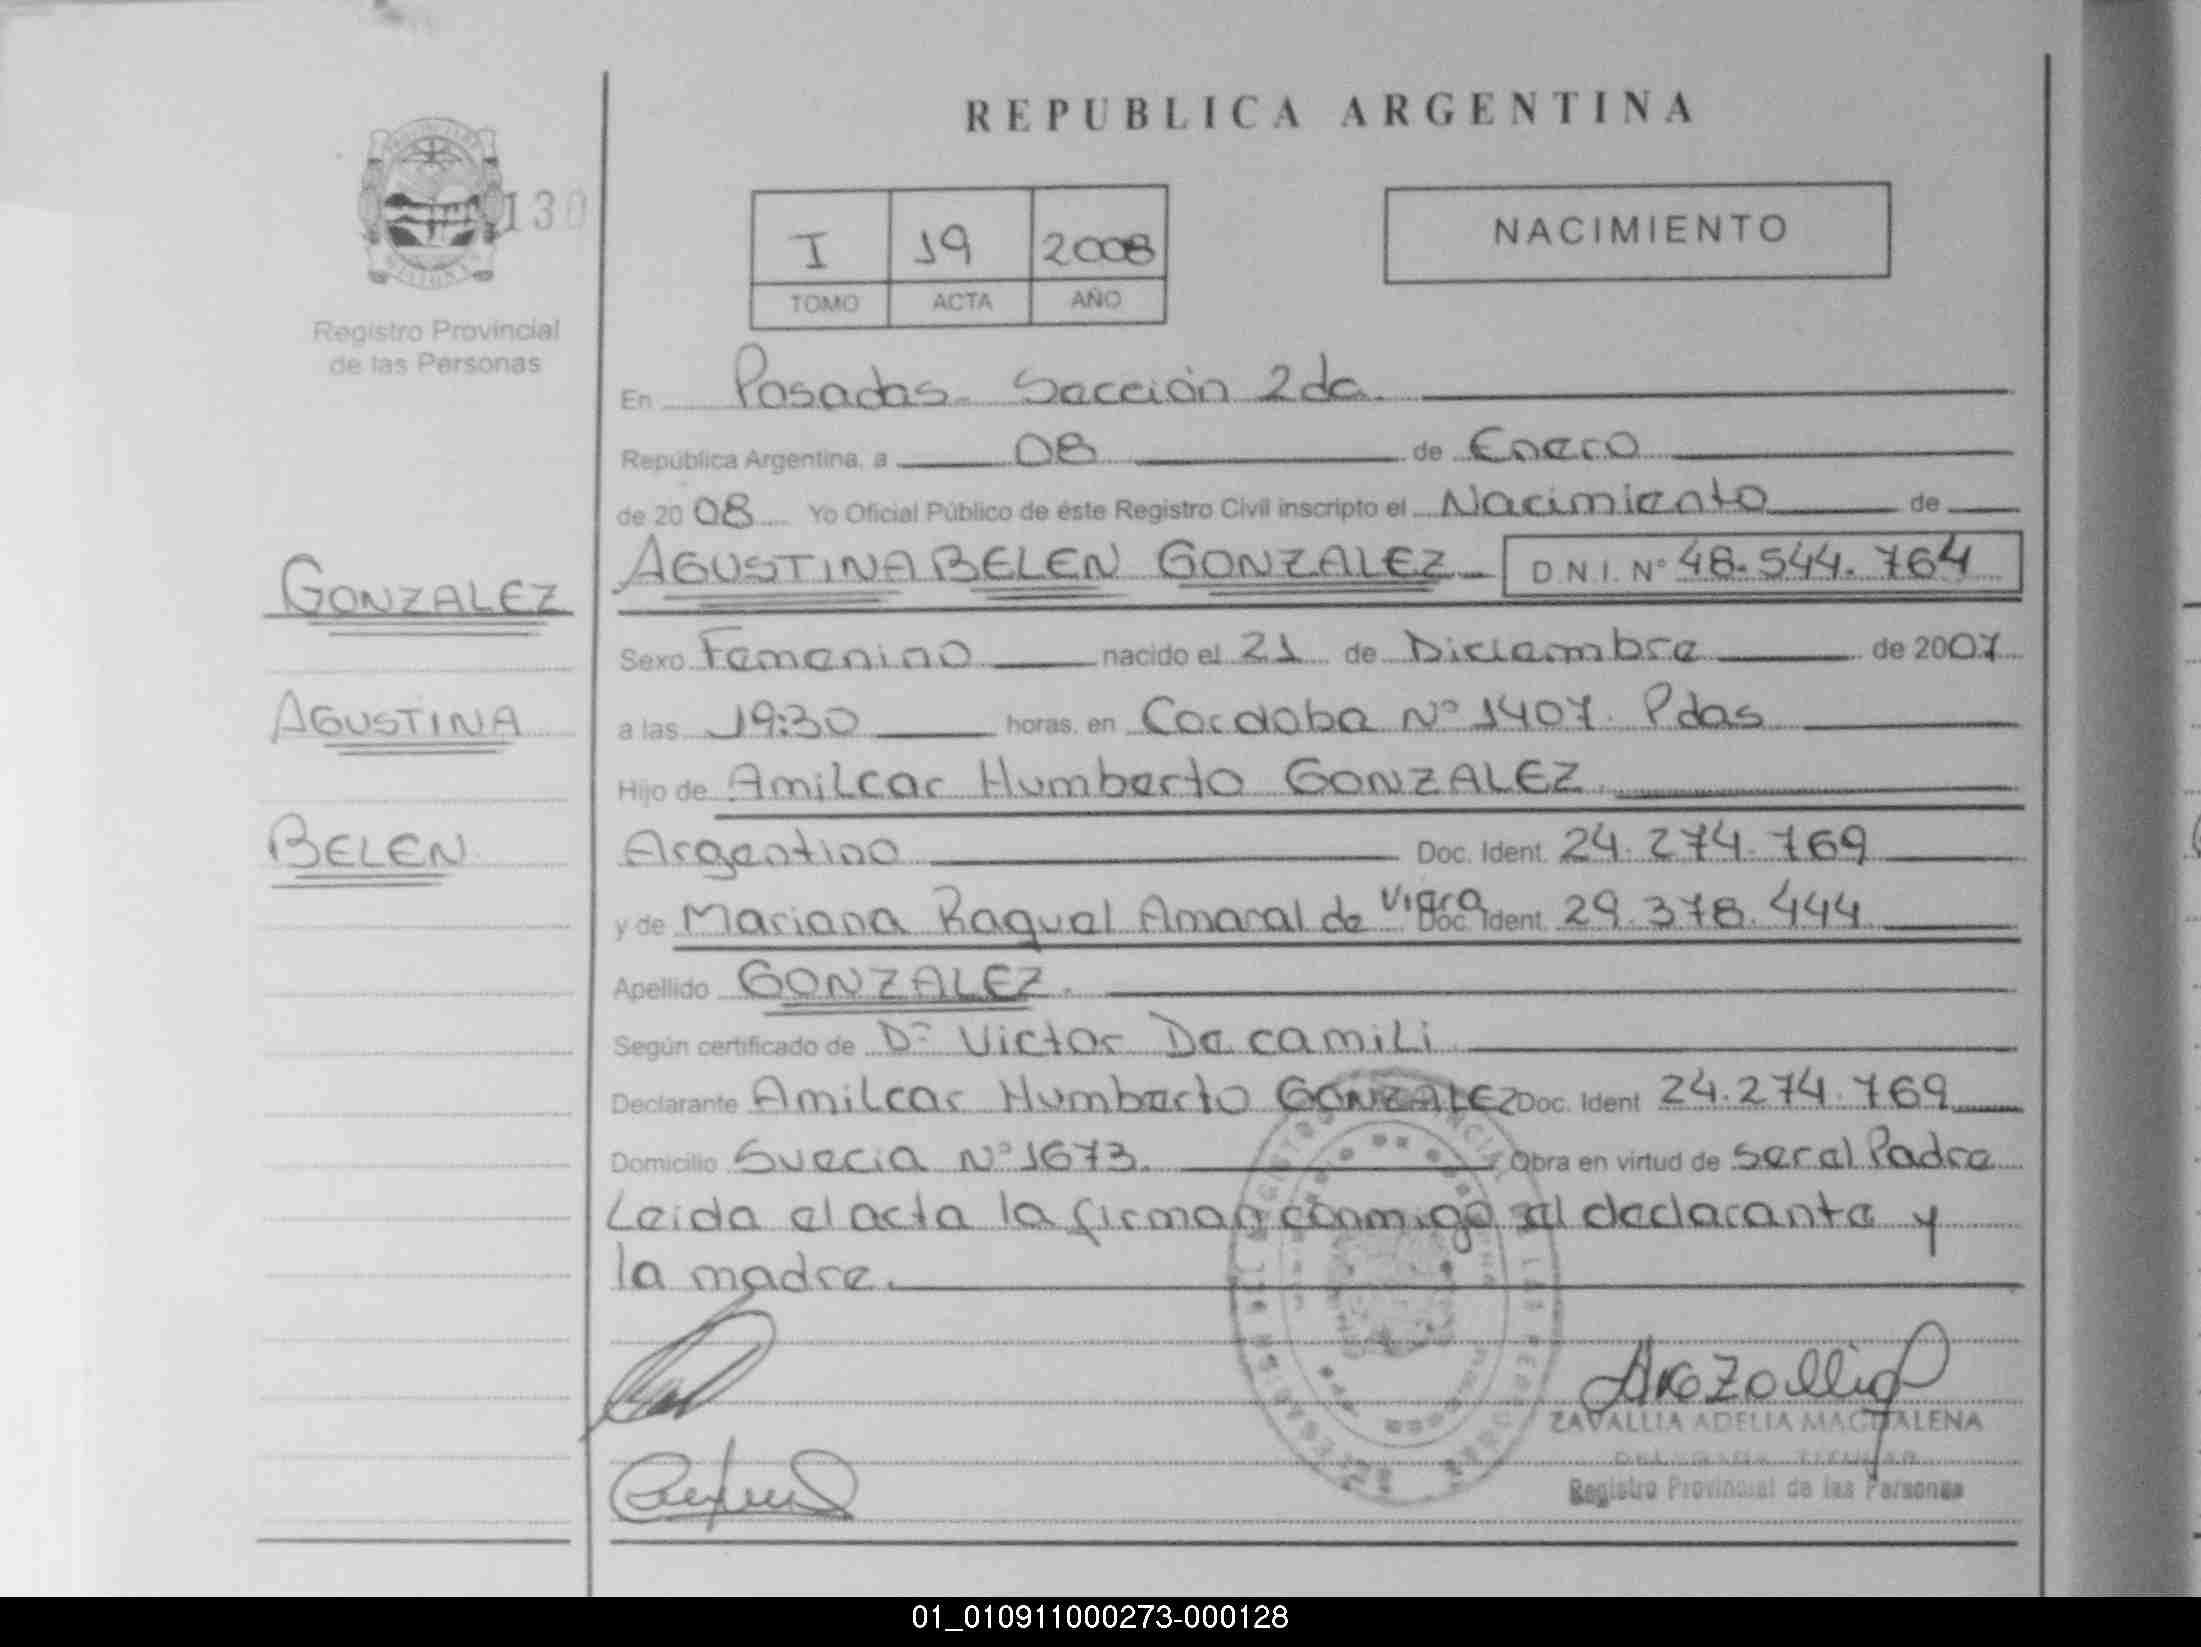 REPUBLICA ARGENTINA
130
I 19 2008
TOMO ACTA AÑO
NACIMIENTO
Registro Provincial
de las Personas
En Posadas. Sección 2da.
República Argentina, a 08 de Enero
de 2008 Yo Oficial Público de éste Registro Civil inscripto el Nacimiento de
AGUSTINA BELEN GONZALEZ D N I. Nº 48.544.764
GONZALEZ
Sexo Femenino nacido el 21 de Diciembre de 2007
AGUSTINA
a las 19:30 horas, en Cordoba Nº 1407. Pdas
Hijo de Amilcar Humberto GONZALEZ
BELEN
Argentino Doc. Ident. 24.274.769
y de Mariana Raquel Amaral de Viera Doc. Ident. 29.378.444
Apellido GONZALEZ.
Según certificado de Dr Victor De camili
Declarante Amilcar Humberto GONZALEZ Doc. Ident 24.274.769
Domicilio Suecia Nº 1673. Obra en virtud de ser el Padre
Leida el acta la firman conmigo el declarante y
la madre.
ZAVALLIA ADELIA MAGDALENA
Registro Provincial de las Personas
01_010911000273-000128